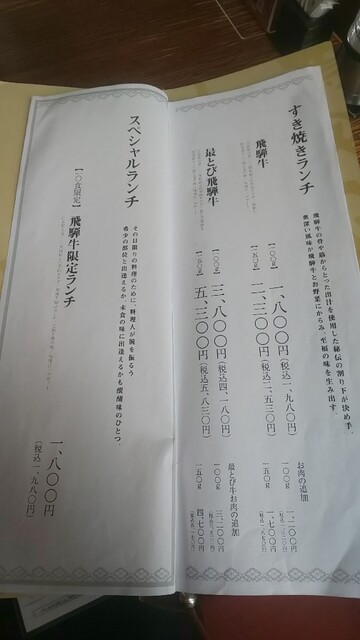 すき焼きランチ
飛騨牛の骨や筋からとった出汁を使用した秘伝の割り下が決め手。
奥深い風味が飛騨牛とお野菜にからみ、至福の味を生み出す。
飛騨牛
一〇〇g 一、八〇〇円(税込一、九八〇円)
一五〇g 二、三〇〇円(税込二、五三〇円)
お肉の追加
一〇〇g 一、二〇〇円
一五〇g 一、七〇〇円
最とび飛騨牛
一〇〇g 三、八〇〇円(税込四、一八〇円)
一五〇g 五、三〇〇円(税込五、八三〇円)
最とび牛お肉の追加
一〇〇g 三、二〇〇円
一五〇g 四、七〇〇円
スペシャルランチ
その日限りの料理のために、料理人が腕を振るう
希少の部位と出逢えるか、未食の味に出逢えるかも醍醐味のひとつ。
【一〇食限定】 飛騨牛限定ランチ
一、八〇〇円
(税込一、九八〇円)